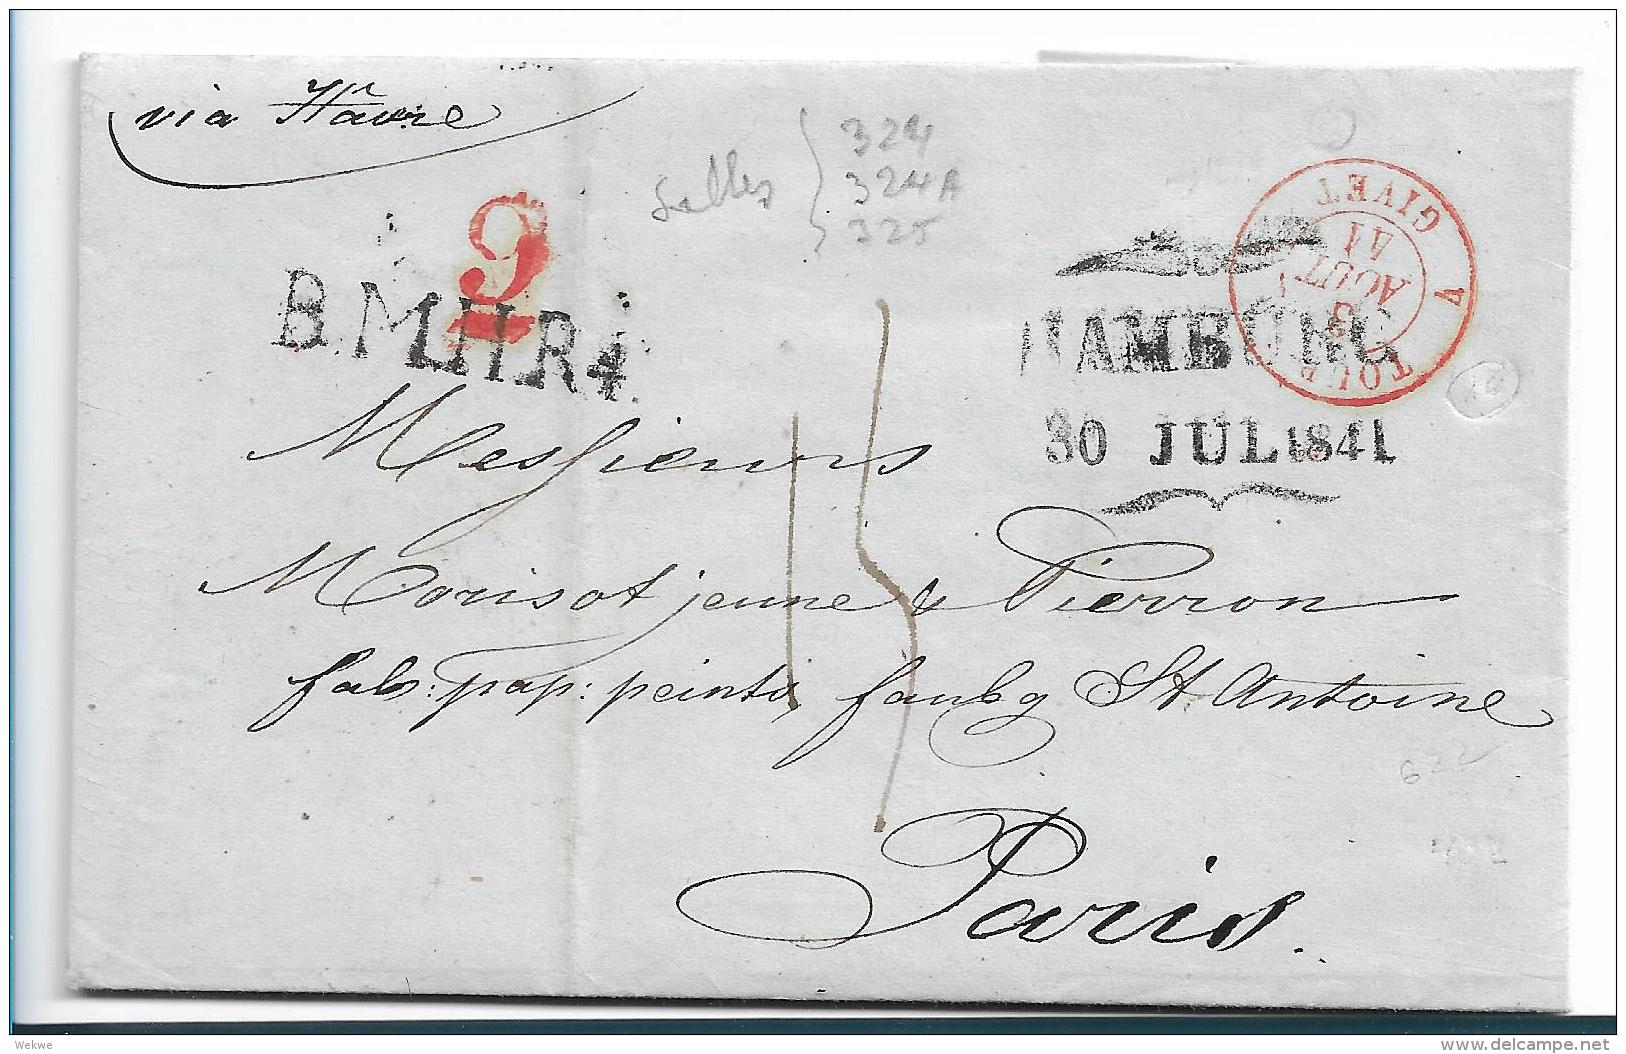 via Hâvre
324
324A
325
2
B.M.I.I.R4.
TOUR A GIVET
3
AOUT
41
HAMBURG
30 JUL 1841
15
Messieurs
Morisot jeune & Pierron
fab: pap: peints, faubg St Antoine
Paris.
622
Wekwe
www.delcampe.net